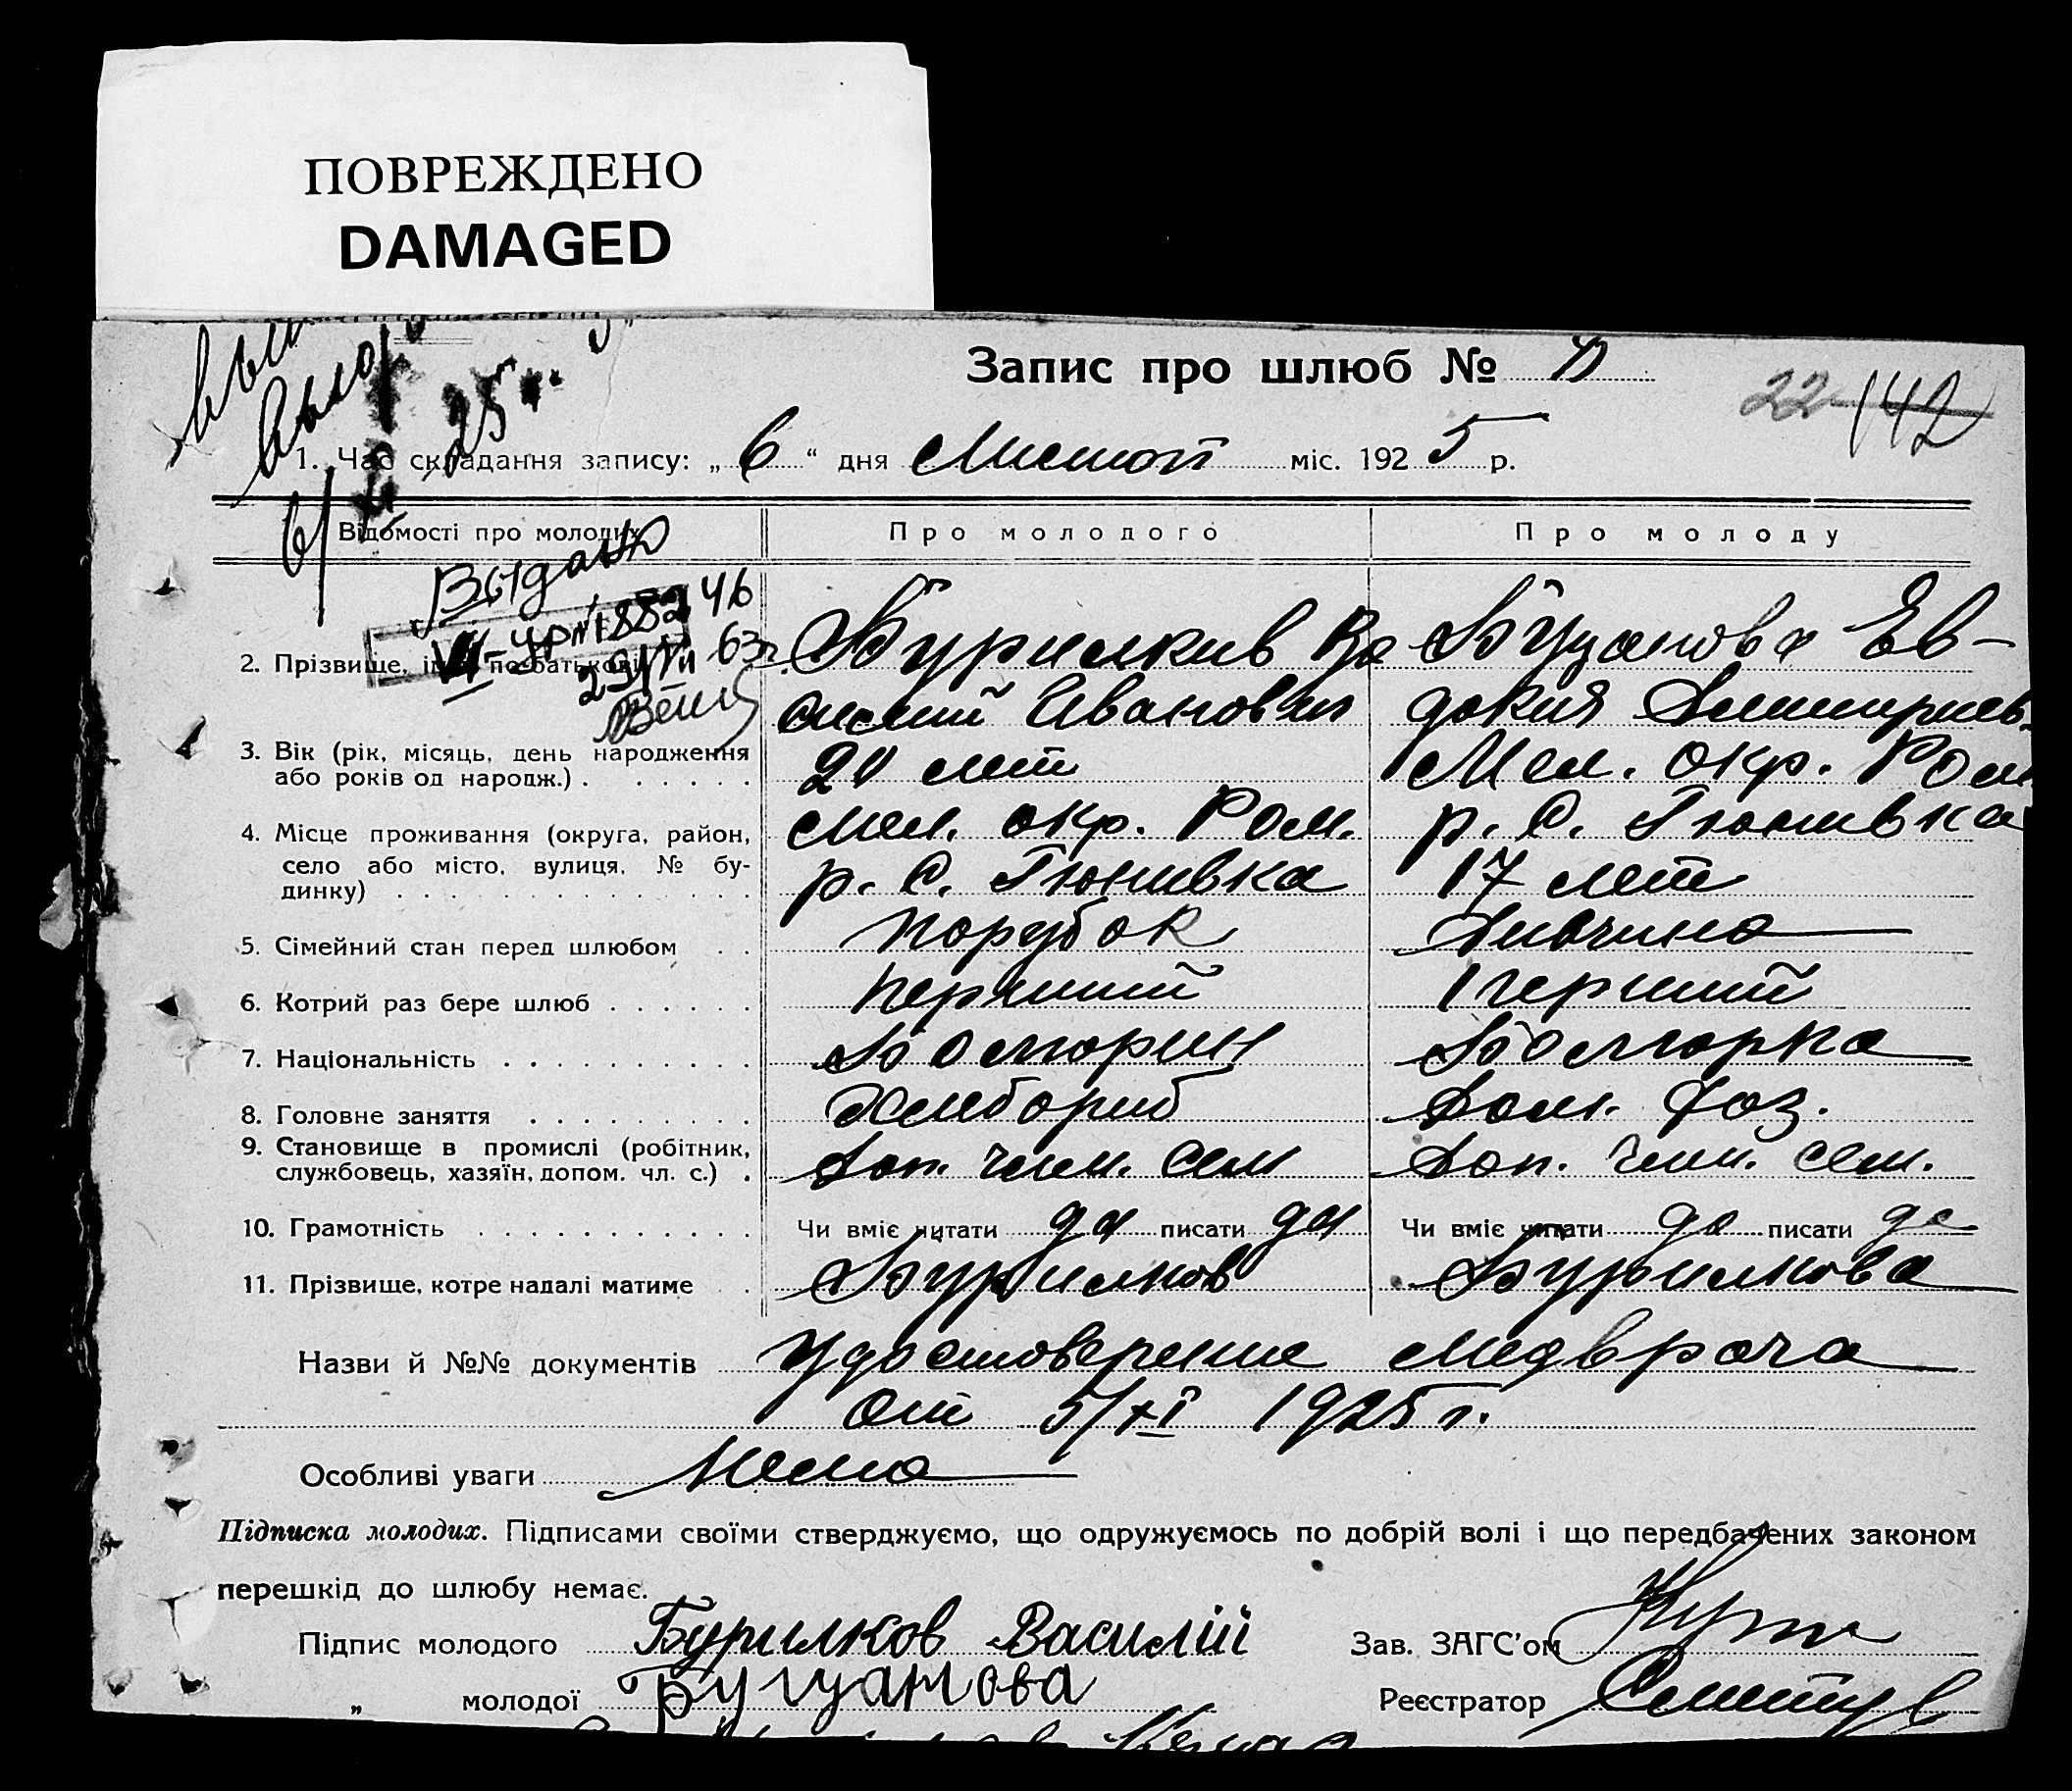 ПОВРЕЖДЕНО
DAMAGED
Запис про шлюб №
22 142
25 г.
1. Час складання запису: „ 6 “ дня Листоп міс. 1925 р.
Відомості про молодих Про молодого Про молоду
Выдано
2. Прізвище, ім'я, по-батькові Бурилкив Ва Буцанова Ев-
силий Иванович докия Дмитриев.
3. Вік (рік, місяць, день народження 20 лет Мел. окр. Ром.
або років од народж.)
4. Місце проживання (округа, район, Мел. окр. Ром. р. С. Гюнивка
село або місто, вулиця, № бу- р. С. Гюнивка 17 лет
динку)
5. Сімейний стан перед шлюбом Порубок Дивчина
6. Котрий раз бере шлюб Перший Перший
7. Національність Болгорин Болгорка
8. Головне заняття Хлибориб Дом. Хоз.
9. Становище в промислі (робітник, Доп. член. сем Доп. член. сем.
службовець, хазяїн, допом. чл. с.)
10. Грамотність Чи вміє читати да писати да Чи вміє читати да писати да
11. Прізвище, котре надалі матиме Бурилков Бурилкова
Назви й №№ документів Удостоверение медврача
от 5/XI 1925 г.
Особливі уваги Нема
Підписка молодих. Підписами своїми стверджуємо, що одружуємось по добрій волі і що передбачених законом
перешкід до шлюбу немає.
Підпис молодого Бурилков Василій Зав. ЗАГС'ом
„ молодої Буцанова Реєстратор